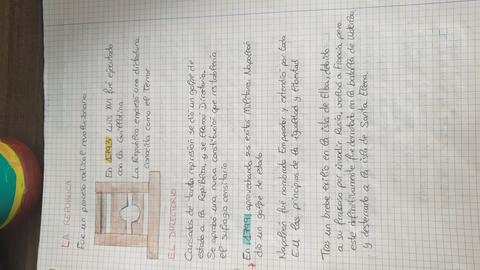 LA REPÚBLICA
Fue un periodo radical revolucionario
En 1793 Luis XVI fue ejecutado
con la Guillotina.
La República empezó una dictadura
conocida como el Terror
EL DIRECTORIO
Cansados de tanta represión se dio un golpe de
estado a la República, y se llamó Directorio.
Se aprobó una nueva constitución que restablecía
el sufragio censitario
En 1799, aprovechando sus éxitos militares, Napoleón
dio un golpe de estado
Napoleón fue nombrado Emperador y extendió por toda
EU los principios de la igualdad y libertad
Tras un breve exilio en la isla de Elba, debido
a su fracaso por invadir Rusia, volvió a Francia pero
este definitivamente fue derrotado en la batalla de Waterloo,
y desterrado a la isla de Santa Elena.